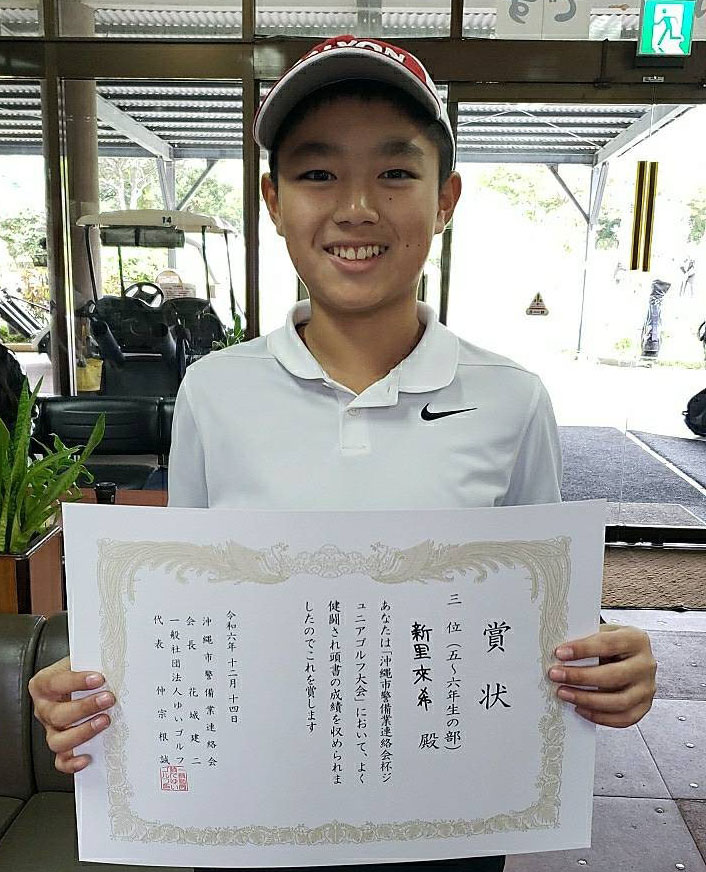 です
14
賞状
三位（五～六年生の部）
新里來希 殿
あなたは「沖縄市警備業連絡会杯ジ
ュニアゴルフ大会」において、よく
健闘され頭書の成績を収められま
したのでこれを賞します
令和六年十二月十四日
沖縄市警備業連絡会
会長 花城建二
一般社団法人ゆいゴルフ
代表 仲宗根誠